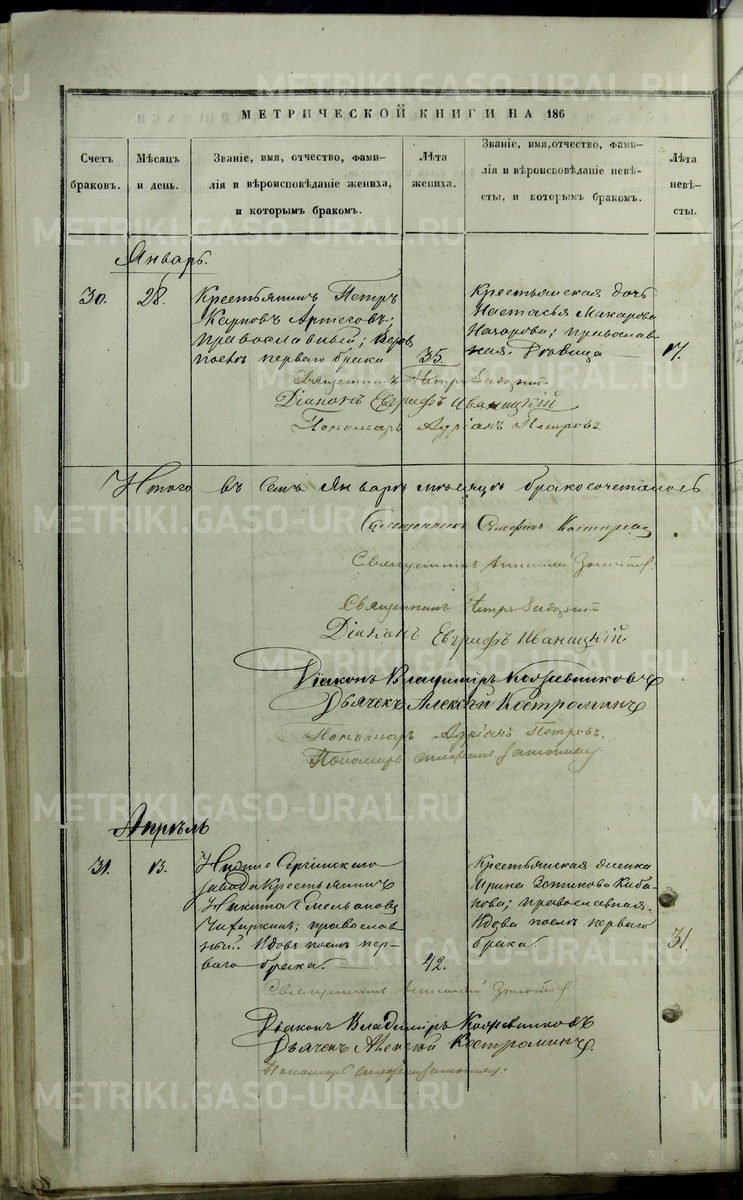 METRIKI.GASO-URAL.RU
МЕТРИЧЕСКОЙ КНИГИ НА 186
Счетъ браковъ.
Мѣсяцъ и день.
Званіе, имя, отчество, фами-
лія и вѣроисповѣданіе жениха,
и которымъ бракомъ.
Лѣта жениха.
Званіе, имя, отчество, фами-
лія и вѣроисповѣданіе невѣ-
сты, и которымъ бракомъ.
Лѣта невѣ-
сты.
Январь.
30.
28.
Крестьянинъ Петръ
Карповъ
православный;
послѣ перваго брака
35.
Крестьянская дочь
Настасья Макарова
православ-
ная. Дѣвица
17.
Священникъ Петръ
Діаконъ Евграфъ Иваницкій
Пономарь Адріанъ Петровъ.
Итого въ семъ Январѣ мѣсяцѣ
Священникъ Стефанъ
Священникъ
Священникъ Петръ
Діаконъ Евграфъ Иваницкій
Діаконъ Владиміръ Кожевниковъ
Дьячекъ Алексѣй Костроминъ
Пономарь Адріанъ Петровъ.
Пономарь Стефанъ
Апрѣль
31.
13.
Нижне-Сергинскаго
завода Крестьянинъ
Никита Емельяновъ
православ-
ный. Вдовъ послѣ пер-
ваго брака.
42.
Крестьянская женка
Ирина Зотикова Каба-
нова; православная.
Вдова послѣ перваго
брака.
31.
Священникъ
Діаконъ Владиміръ Кожевниковъ
Дьячекъ Алексѣй Костроминъ.
Пономарь Стефанъ